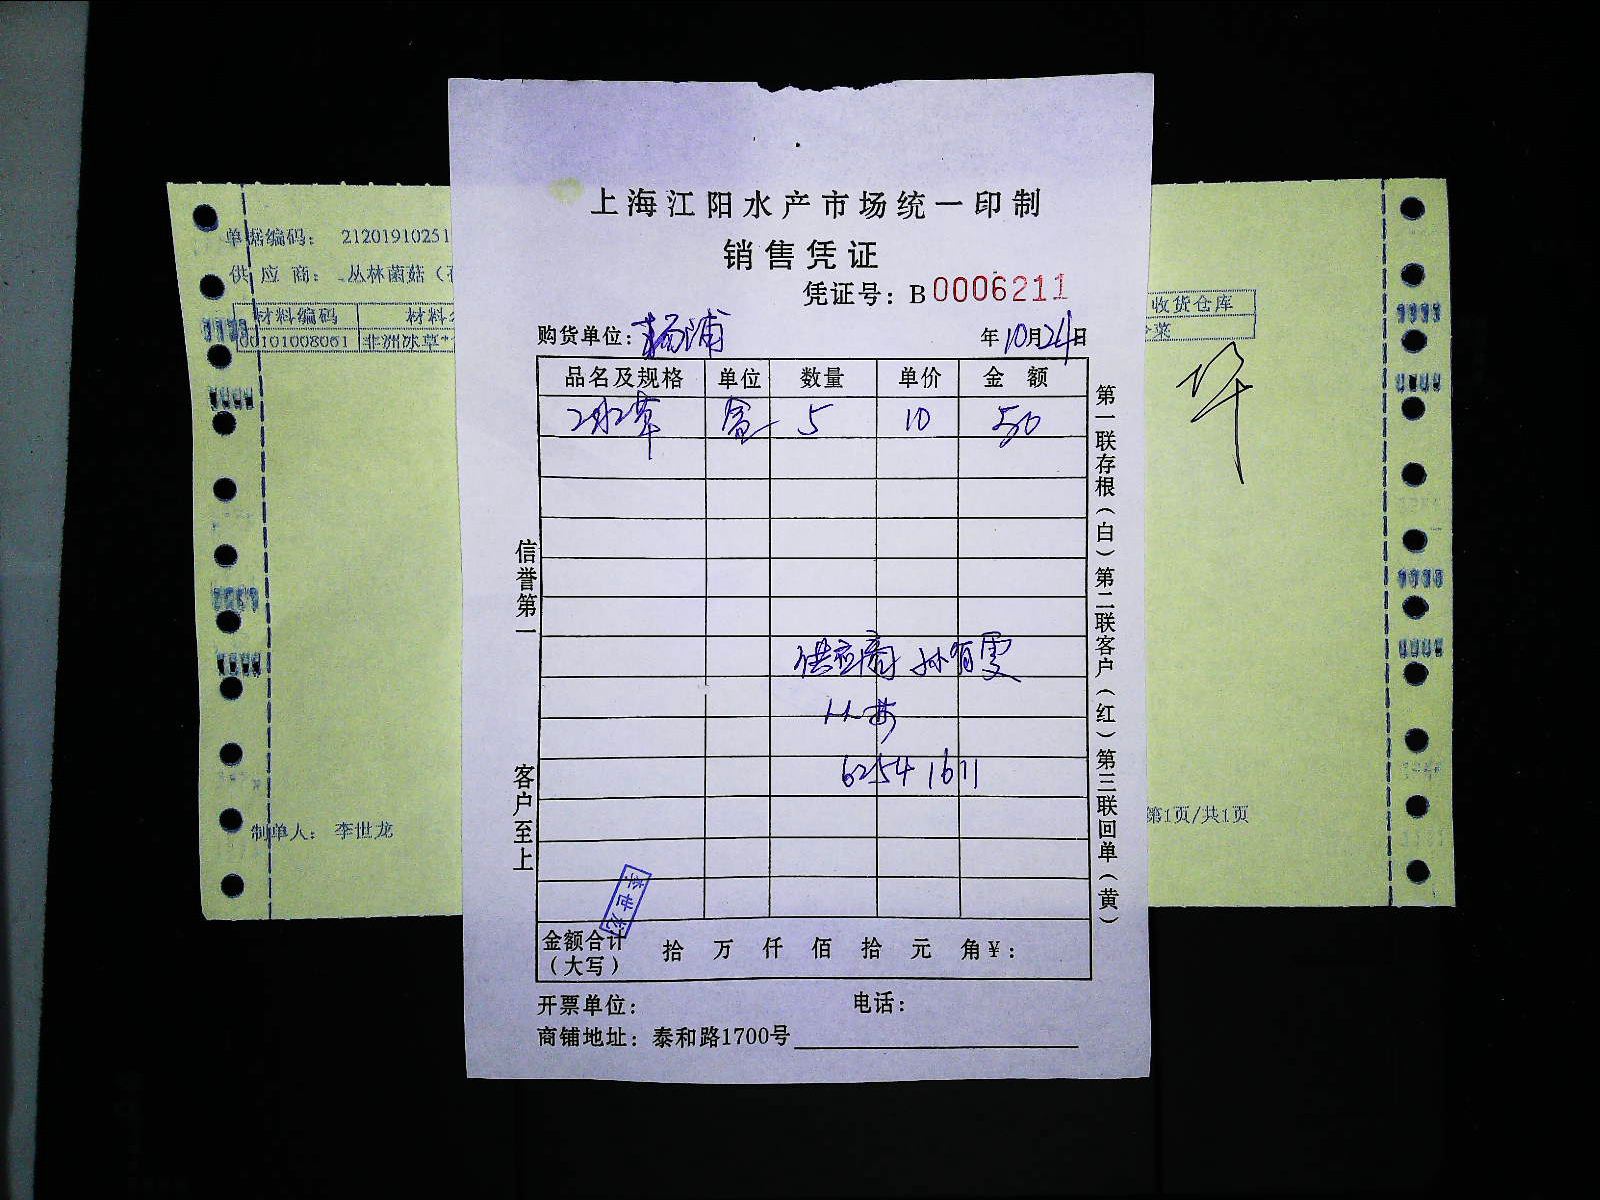 上海江阳水产市场统一印制
销售凭证
凭证号：B0006211
购货单位：杨浦 年10月24日
品名及规格 单位 数量 单价 金 额
冰草 盒 5 10 50
供应商 孙有雯
6254 1611
金额合计（大写） 拾 万 仟 佰 拾 元 角¥：
开票单位： 电话：
商铺地址：泰和路1700号
信誉第一
客户至上
第一联存根（白）第二联客户（红）第三联回单（黄）
李世龙
单据编码： 21201910251
供 应 商： 丛林菌菇（
材料编码 材料
00101008061 非洲冰草*
制单人： 李世龙
收货仓库
菜
第1页/共1页